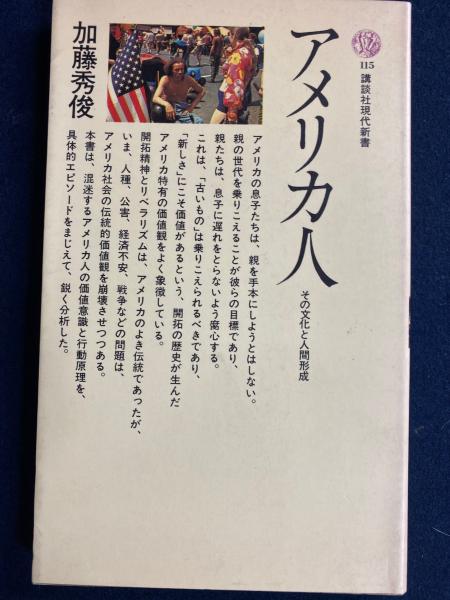 115
講談社現代新書
アメリカ人
その文化と人間形成
加藤秀俊
アメリカの息子たちは、親を手本にしようとはしない。
親の世代を乗りこえることが彼らの目標であり、
親たちは、息子に遅れをとらないよう腐心する。
これは、「古いもの」は乗りこえられるべきであり、
「新しさ」にこそ価値があるという、開拓の歴史が生んだ
アメリカ特有の価値観をよく象徴している。
開拓精神とリベラリズムは、アメリカのよき伝統であったが、
いま、人種、公害、経済不安、戦争などの問題は、
アメリカ社会の伝統的価値観を崩壊させつつある。
本書は、混迷するアメリカ人の価値意識と行動原理を、
具体的エピソードをまじえて、鋭く分析した。